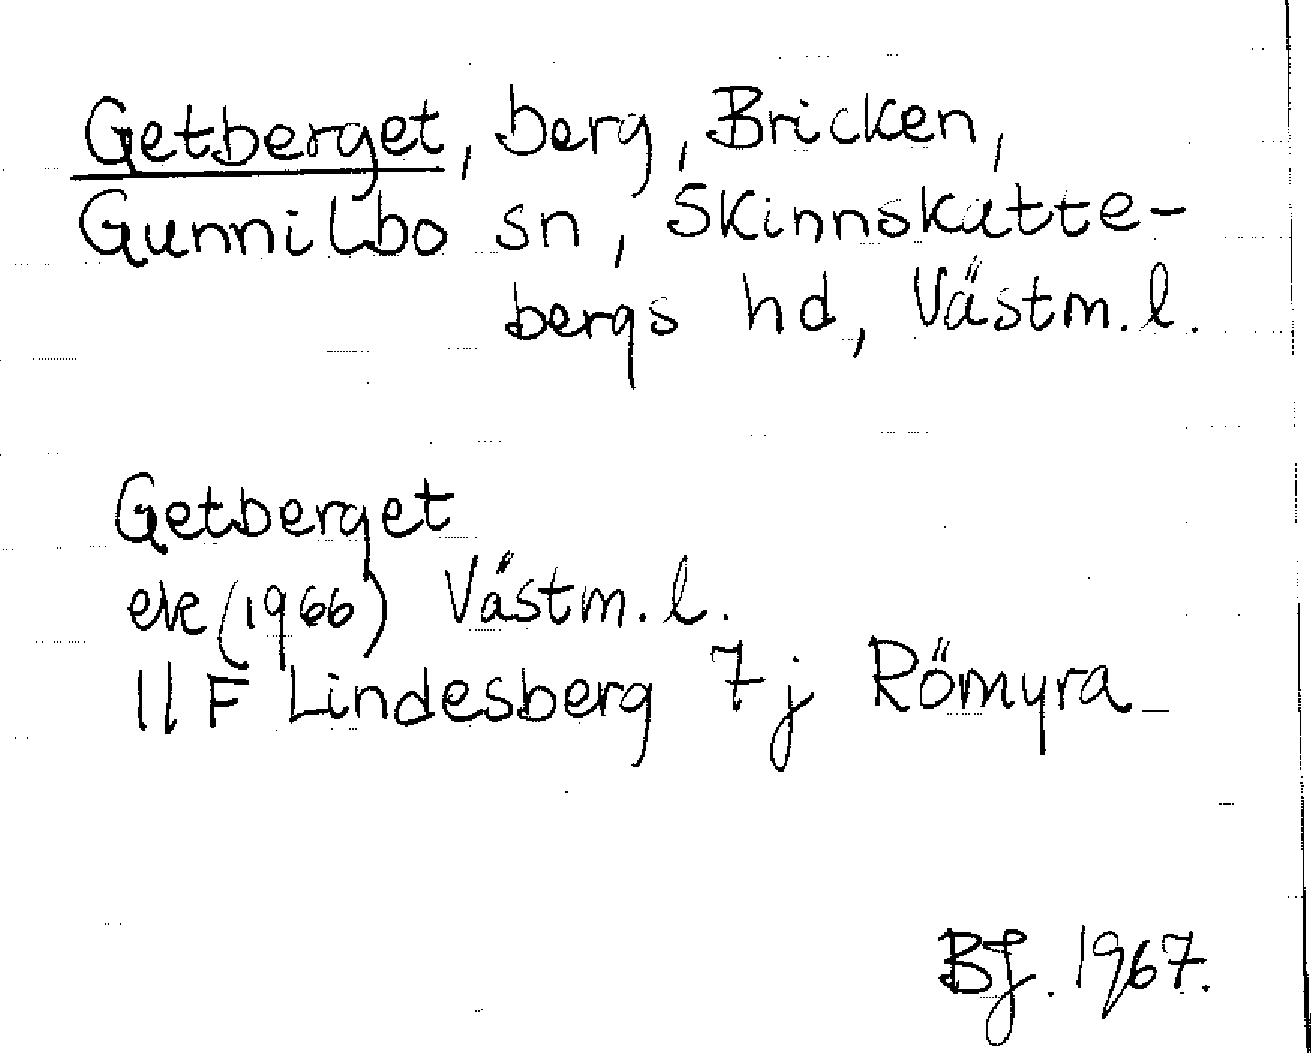 Getberget, berg, Bricken,
Gunnilbo sn, Skinnskatte-
bergs hd, Västm. l.
Getberget
ek (1966) Västm. l.
11 F Lindesberg 7j Römyra
BJ. 1967.